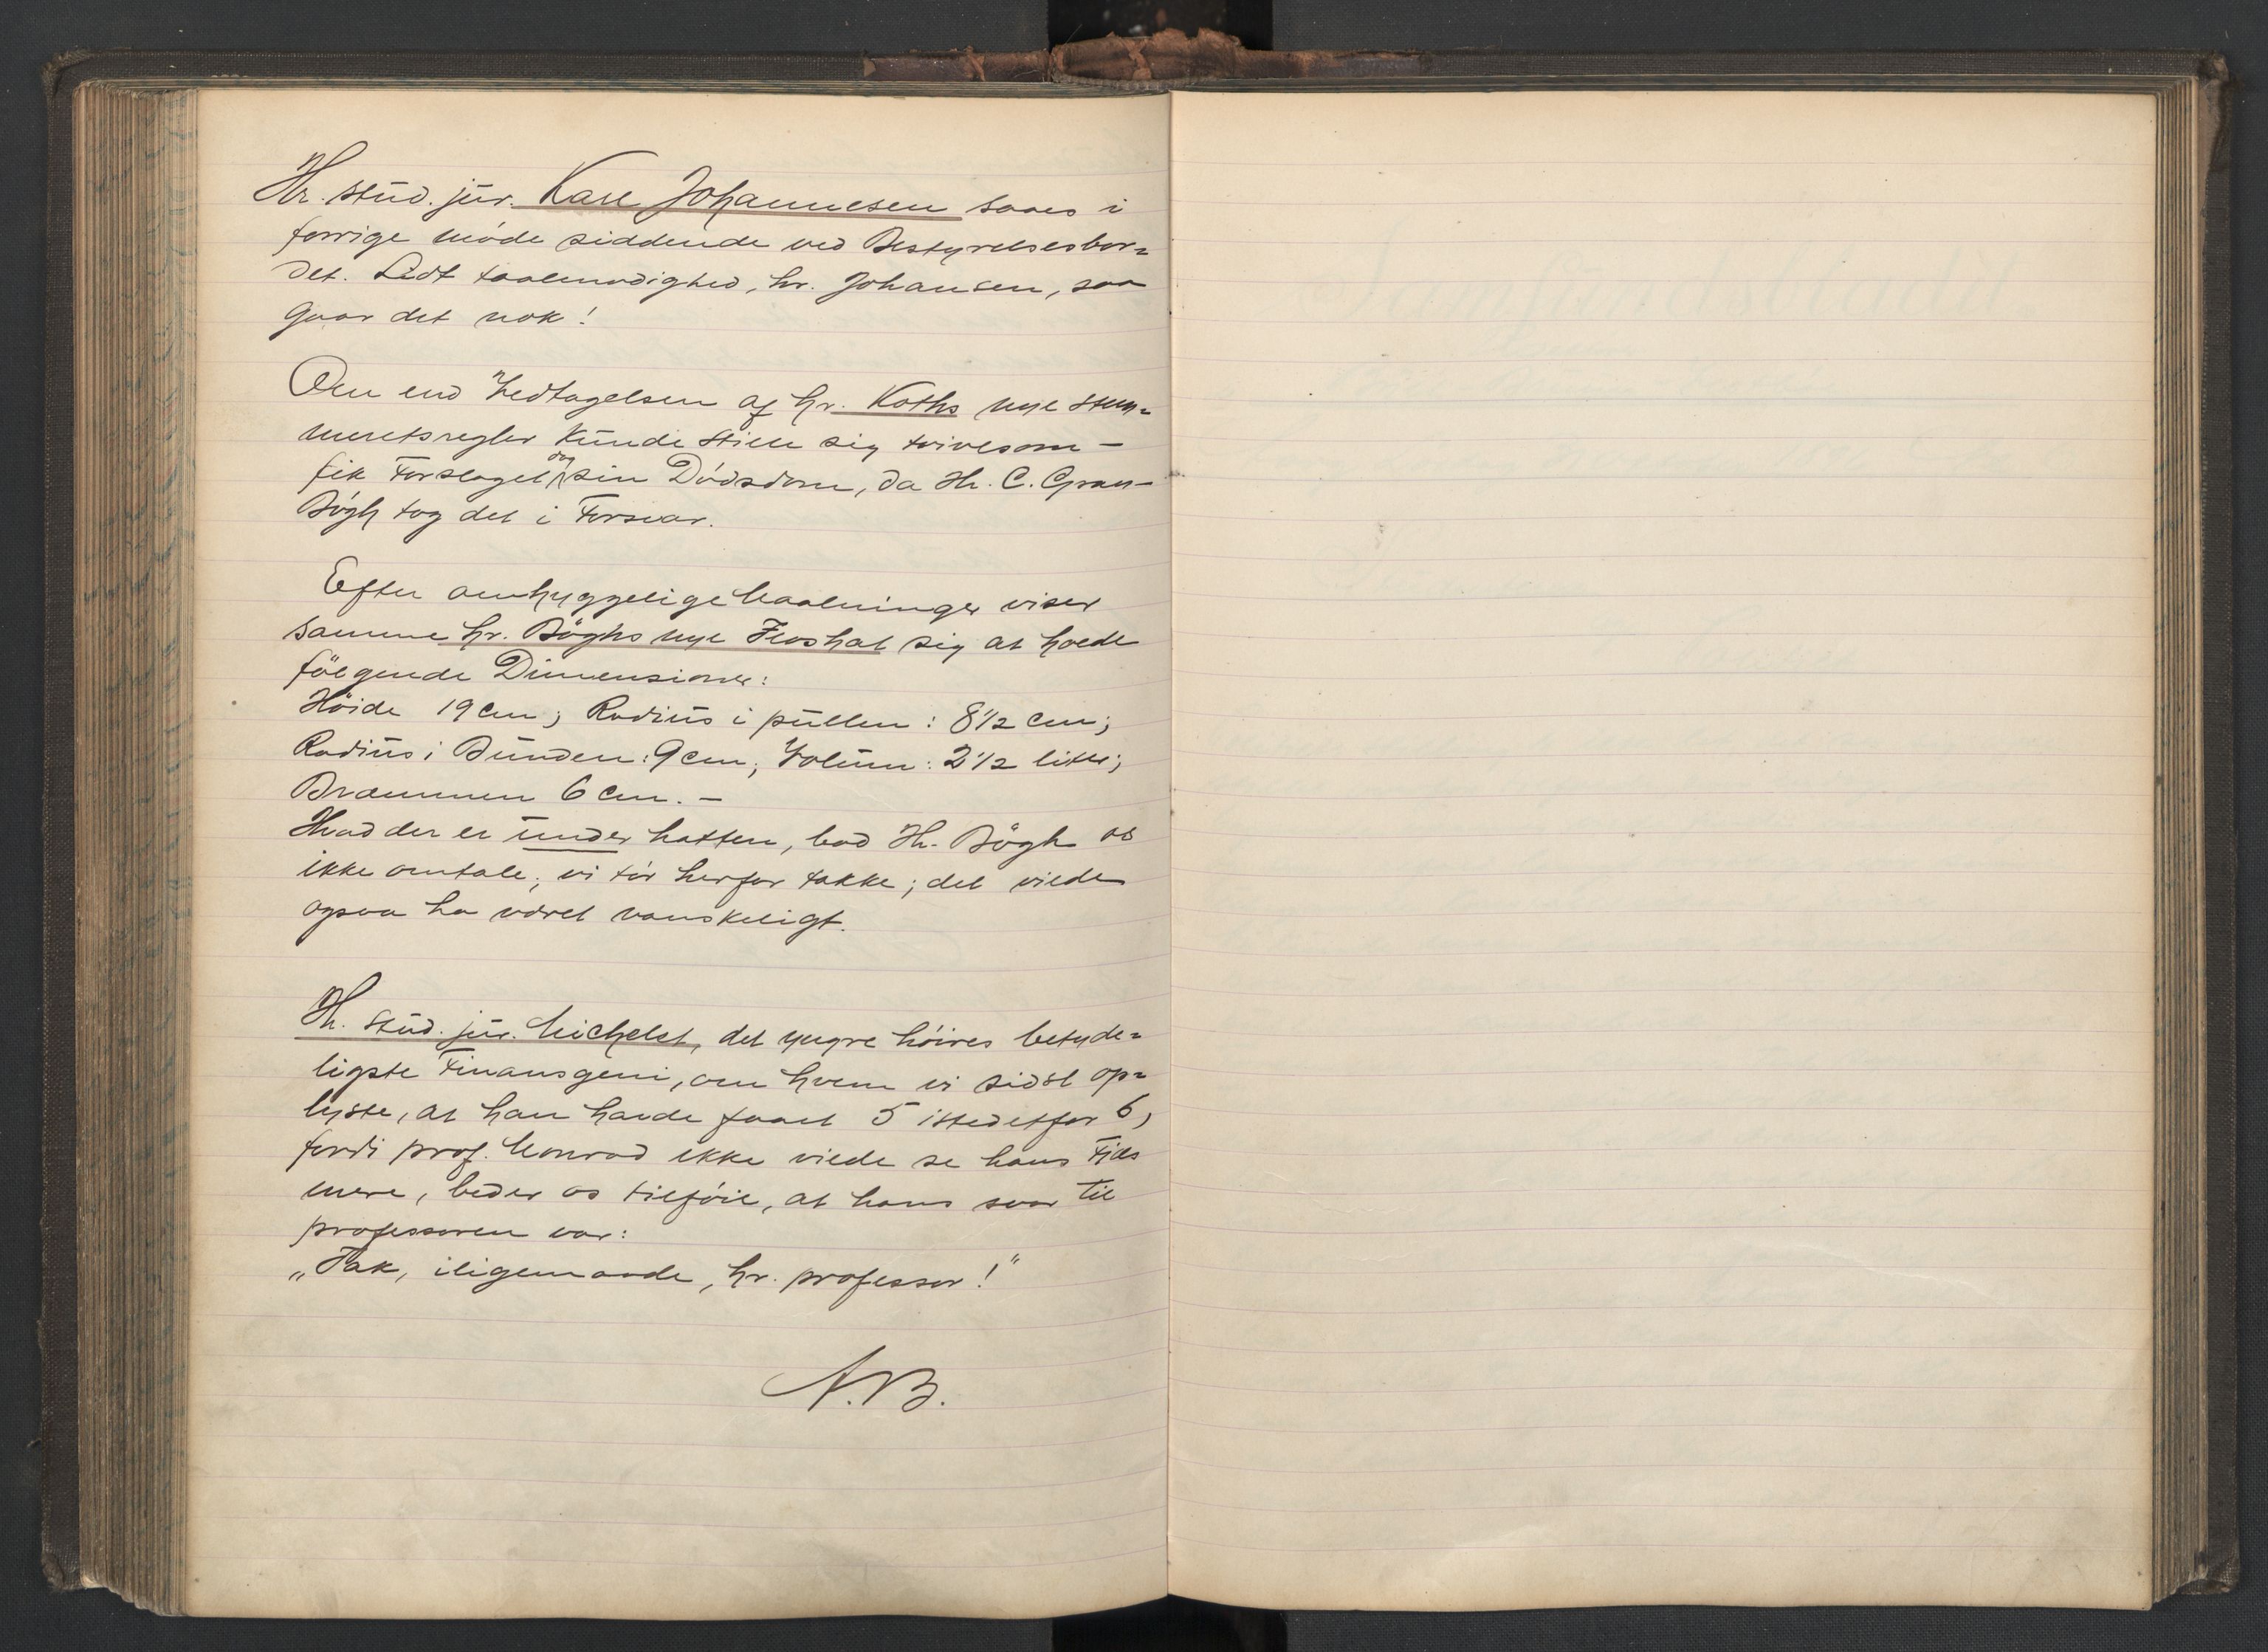 Hr. stud. jur. Karl Johannesen saaes i
forrige møde siddende ved Bestyrelsesbor=
det. Lidt taalmodighed, hr. Johansen, saa
gaar det nok!
Om end Vedtagelsen af hr. Koths nye stem=
meretsregler kunde stille sig tvivlsom –
fik Forslaget dog sin Dødsdom, da Hr. C. Gran-
Bøgh tog det i Forsvar.
Efter omhyggelige Maalninger viser
samme hr. Bøghs nye Floshat sig at holde
følgende Dimensioner:
Høide 19 cm; Radius i pullen: 8 1/2 cm;
Radius i Bunden: 9 cm; Volum: 2 1/2 liter;
Bræmmen 6 cm. –
Hvad der er under hatten, bad Hr. Bøgh os
ikke omtale; vi tør herfor takke; det vilde
ogsaa ha været vanskeligt.
Hr. stud. jur. Michelet, det yngre høires betyde=
ligste Finansgeni, om hvem vi sidst op=
lyste, at han havde faaet 5 istedetfor 6,
fordi prof. Monrad ikke vilde se hans Fjæs
mere, beder os tilføie, at hans svar til
professoren var:
„Tak, iligemaade, hr. professor!"
A.B.